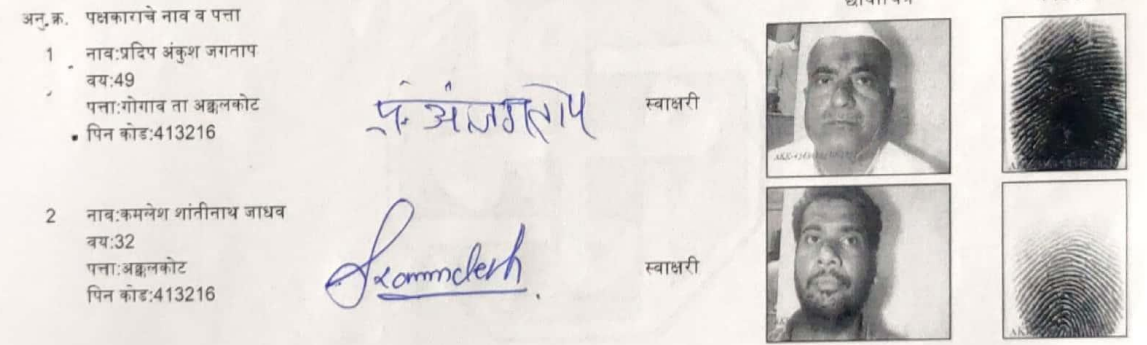 अनु.क्र. पक्षकाराचे नाव व पत्ता
1 नाव:प्रदिप अंकुश जगताप
वय:49
पत्ता:गोगाव ता अक्कलकोट
पिन कोड:413216
प्र. अं.जगताप
स्वाक्षरी
2 नाव:कमलेश शांतीनाथ जाधव
वय:32
पत्ता:अक्कलकोट
पिन कोड:413216
स्वाक्षरी